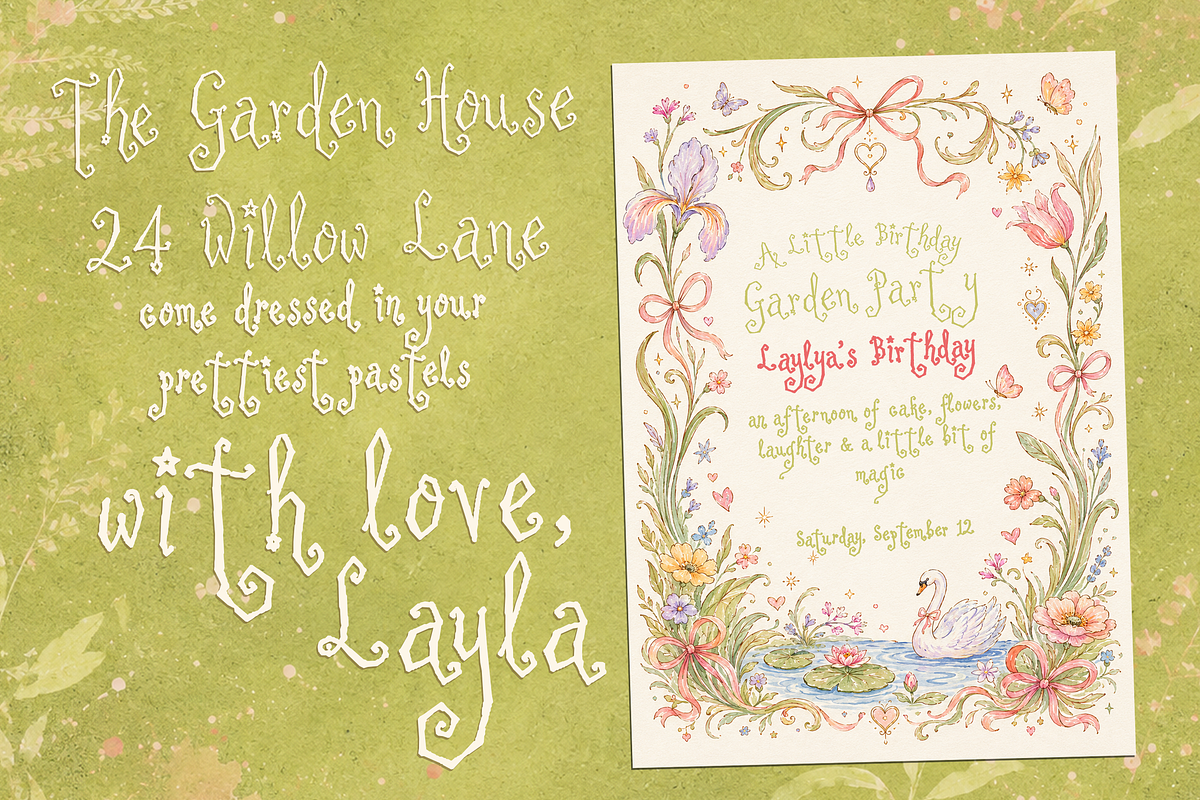 The Garden House
24 Willow Lane
come dressed in your
prettiest pastels
with love,
Layla
A Little Birthday
Garden Party
Laylya's Birthday
an afternoon of cake, flowers,
laughter & a little bit of
magic
Saturday, September 12